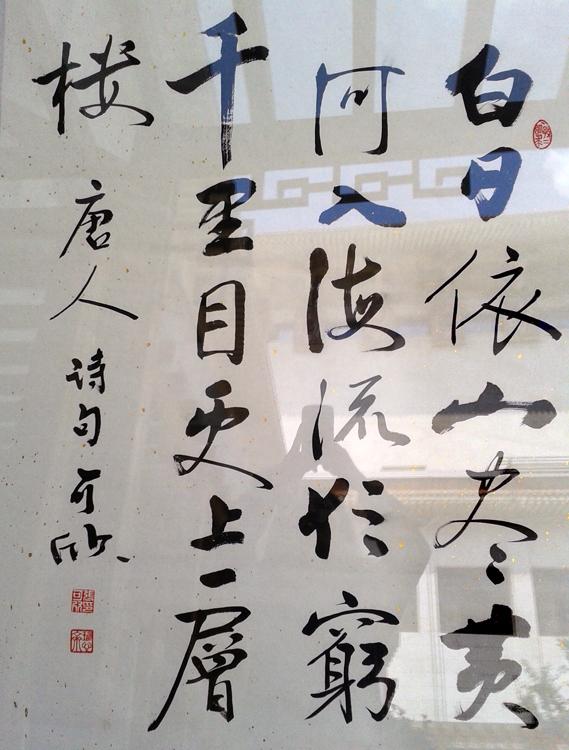 白日依山尽黄
河入海流欲窮
千里目更上一層
楼 唐人诗句可欣